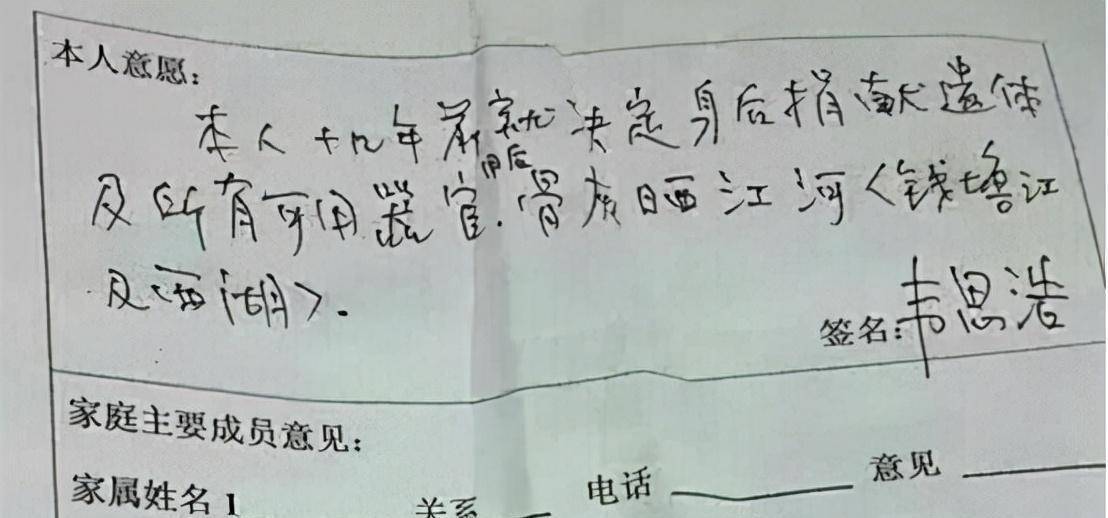 本人意愿：
本人十九年前就决定身后捐献遗体
及所有可用器官.用后骨灰晒江河<钱塘江
及西湖>.
签名：韦思浩
家庭主要成员意见：
家属姓名1 关系 电话 意见